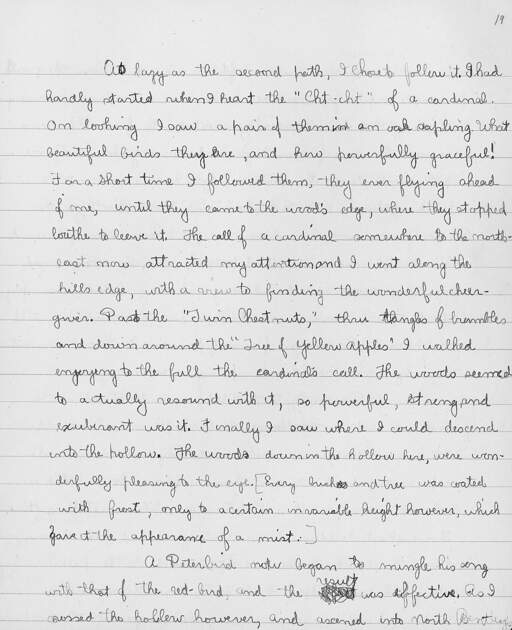 19
As lazy as the second path, I chose to follow it. I had
hardly started when I heart the "Cht-cht" of a cardinal.
On looking I saw a pair of them in an oak sapling. What
beautiful birds they are, and how powerfully graceful!
For a short time I followed them, they ever flying ahead
of me, until they came to the wood's edge, where they stopped
loathe to leave it. The call of a cardinal somewhere to the north-
east now attracted my attention and I went along the
hills edge, with a view to finding the wonderful cheer-
giver. Past the "Twin Chestnuts," thru tangles of brambles
and down around the "Tree of Yellow Apples" I walked
enjoying to the full the cardinal's call. The woods seemed
to actually resound with it, so powerful, strong and
exuberant was it. Finally I saw where I could descend
into the hollow. The woods down in the hollow here, were won-
derfully pleasing to the eye. [Every bush and tree was coated
with frost, only to a certain invariable height however, which
gave it the appearance of a mist.]
A Peterbird now began to mingle his song
with that of the red-bird, and the result was effective. As I
crossed the hollow however, and ascened into North